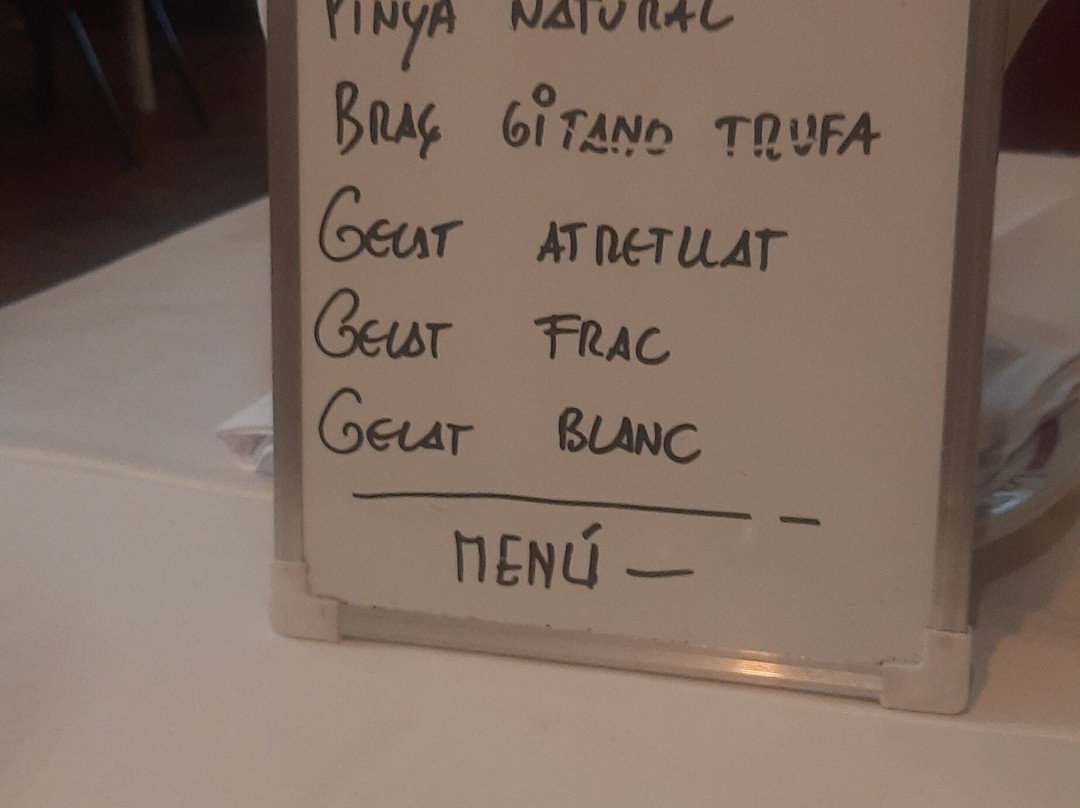 PINYA NATURAL
BRAÇ GITANO TRUFA
GELAT ATRETLLAT
GELAT FRAC
GELAT BLANC
MENÚ —